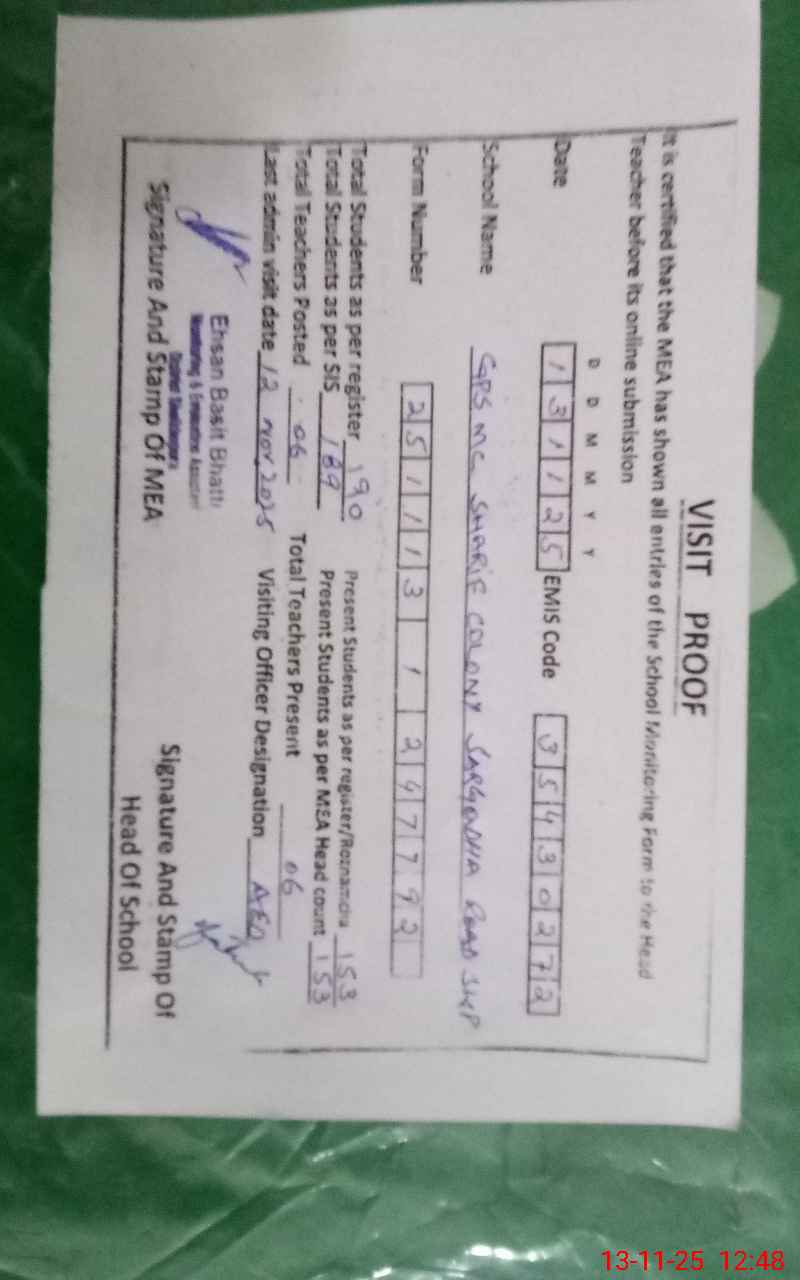 VISIT PROOF
It is certified that the MEA has shown all entries of the School Monitoring Form to the Head
Teacher before its online submission
D D M M Y Y
Date 1 3 1 1 2 5 EMIS Code 3 5 4 3 0 2 7 2
School Name GPS MC SHARIF COLONY SARGODHA ROAD SHP
Form Number 2 5 1 1 1 3 1 2 4 7 7 9 2
Total Students as per register 190 Present Students as per register/Roznamcha 153
Total Students as per SIS 189 Present Students as per MEA Head count 153
Total Teachers Posted 06 Total Teachers Present 06
Last admin visit date 12 Nov 2025 Visiting Officer Designation AEO
Ehsan Basit Bhatti
Monitoring & Evaluation Assistant
Signature And Stamp Of MEA
Signature And Stamp Of
Head Of School
13-11-25 12:48